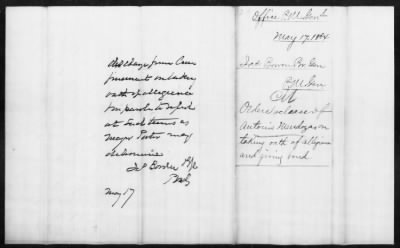 discharge from Con
finement on taking
oath of allegiance
& on parole to report
at such times as
Major Porter may
determine
Jas Bowen B G
P M G
May 17
Office P. M. Genl
May 17, 1864
Jas Bowen Br Gen
P. M. Gen
Orders release of
Antonio Mendoza on
taking oath of allegiance
and giving